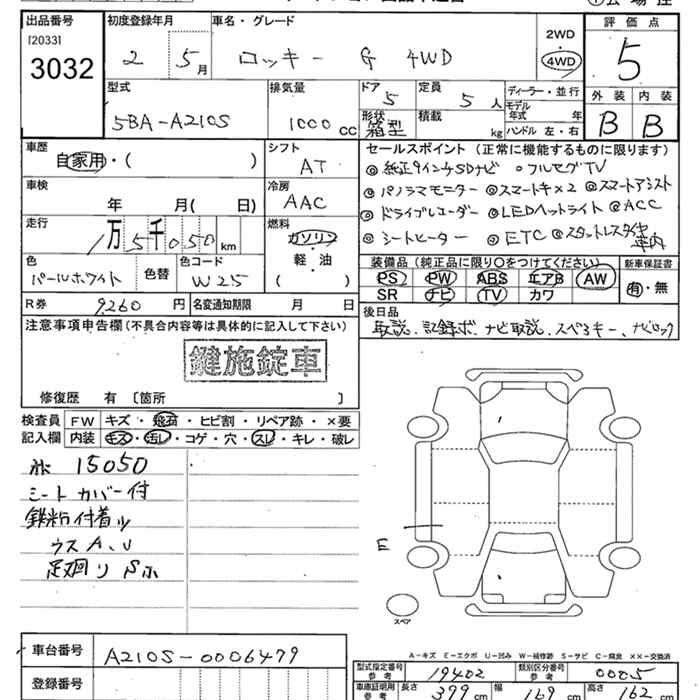 出品番号 初度登録年月 車名・グレード 評価点
[2033] 2WD
3032 2 5月 ロッキー G 4WD ・ 5
4WD
型式 排気量 ドア 定員 ディーラー・並行 外装 内装
5BA-A210S 1000CC 5 5人 モデル年式 年 B B
形状 積載 ハンドル 左・右
箱型 kg
車歴 シフト セールスポイント (正常に機能するものに限ります)
自家用・( ) AT ◎純正9インチSDナビ ○フルセグTV
車検 冷房 ◎パノラマモニター ◎スマートキー×2 ◎スマートアシスト
年 月( 日) AAC ◎ドライブレコーダー ◎LEDヘットライト ◎ACC
走行 燃料 ◎シートヒーター ◎ETC ◎スタットレスタイヤ
1万5千050km ガソリン 車内
・ 装備品(純正品に限り○をつけてください) 新車保証書
色 色替 色コード 軽・油 PS PW ABS エアB AW 有・無
パールホワイト W25 ( ) SR ナビ TV カワ
R券 9260円 名変通知期限 月 日 後日品
注意事項申告欄(不具合内容等は具体的に記入して下さい) 取説、記録ボ、ナビ取説、スペアキー、ナビロック
鍵施錠車
修復歴 有 〔箇所 〕
検査員 FW キズ・飛石・ヒビ割・リペア跡・×要
記入欄 内装 キズ・汚レ・コゲ・穴・スレ・キレ・破レ
15050
シートカバー付
鉄粉付着ツ
ウスA、U
足廻りSホ
E
スペア
A-キズ E-エクボ U-凹み W-補修跡 S-サビ C-腐食 ××-交換済
車台番号 A210S-0006479 型式指定番号 参考 19402 類別区分番号 参考 0005
登録番号 車庫証明用 参考 長さ 399cm 幅 169cm 高さ 162cm